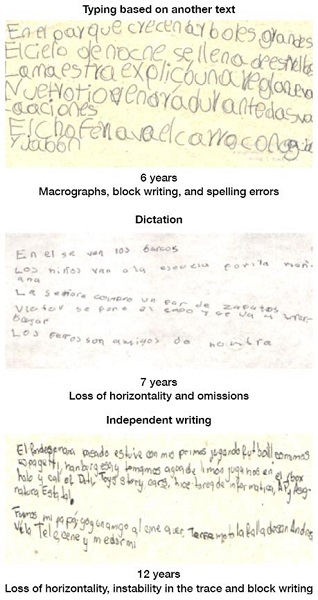 Typing based on another text
En el parque crecen arboles grandes
El cielo de noche se llena de estrellas
La maestra explico una regla nueva
Nuestro tio vendra durante las va
caciones
El chofer lava el carro con agua
y jabon
6 years
Macrographs, block writing, and spelling errors
Dictation
En el se ven los barcos
Los niños van a la escuela por la mañ
ana
La señora compro un par de zapatos
Victor se pone el saco y se va a trar
bajar
Los perros son amigos de hombre
7 years
Loss of horizontality and omissions
Independent writing
El fin de semana pasado estuve con mis primos jugando futball comimos
espagetti, hamburgesa y tomamos agua de limon jugamos en el xbox
halo y call of Duty, Toys story cars, hice tarea de información, Asig
natura Estatal.
Fuimos mi papá yo y un amigo al cine a ver Terremoto la falla de san Andres
Vi la Tele, cene y me dormi
12 years
Loss of horizontality, instability in the trace and block writing